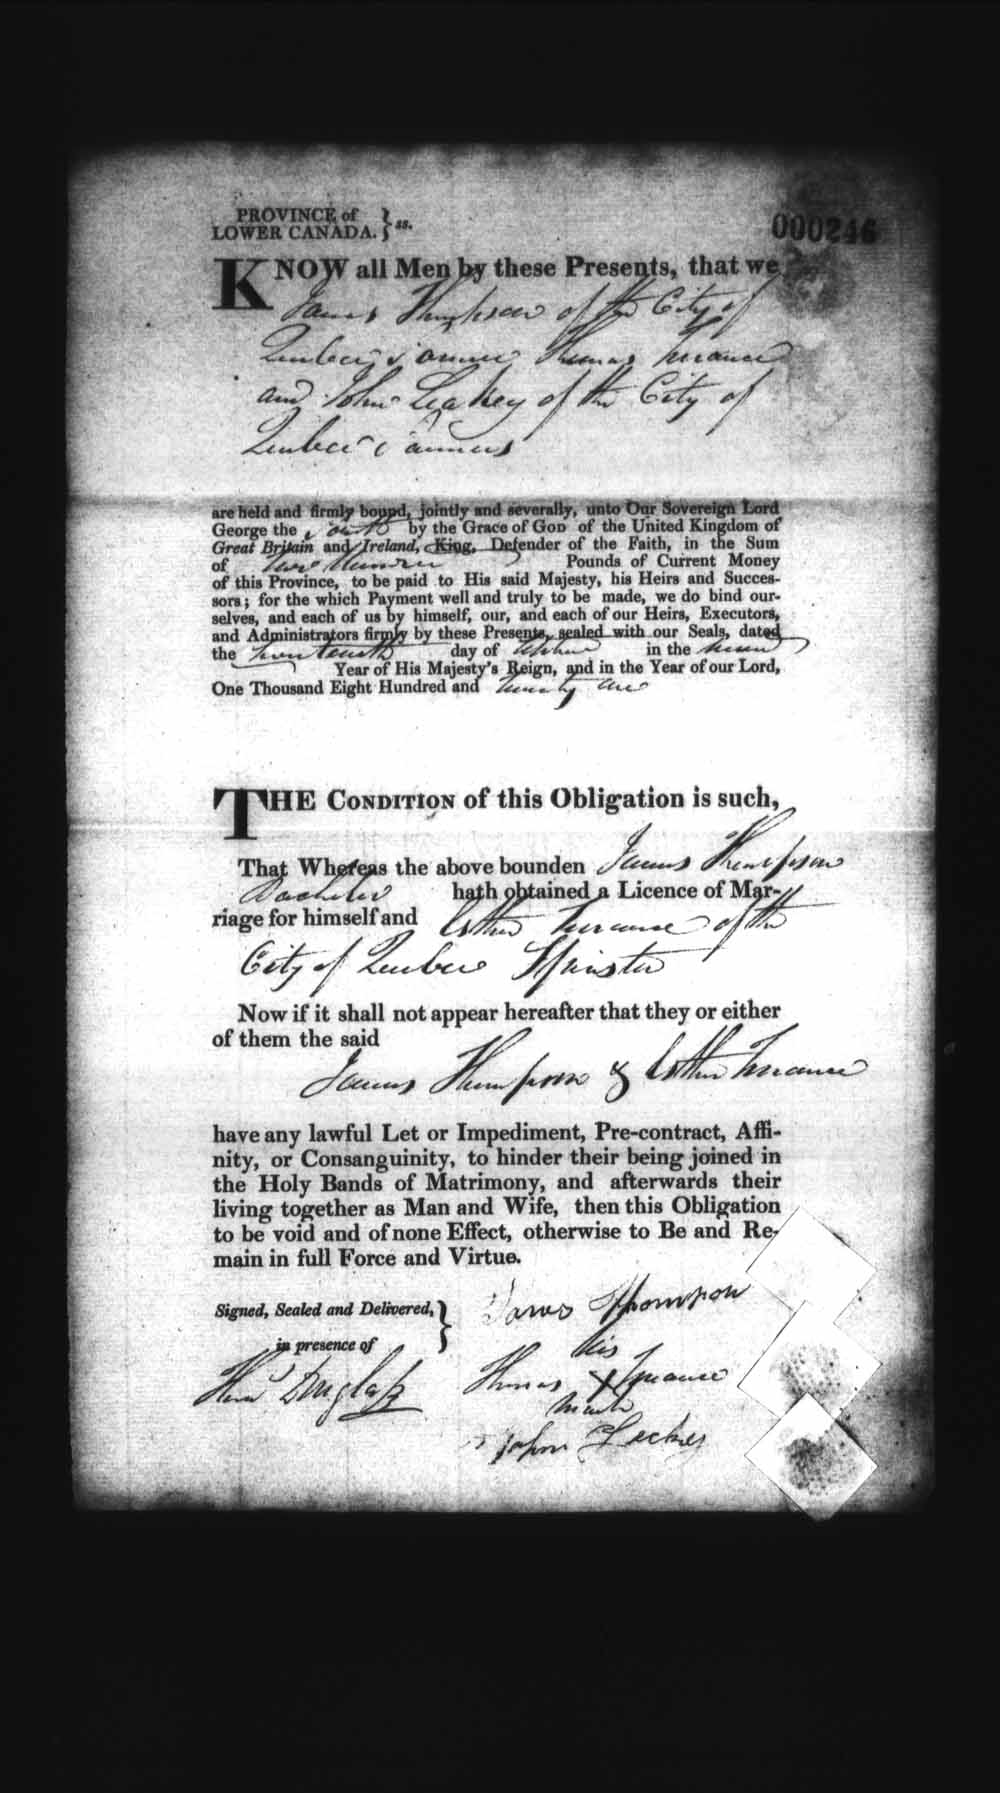 PROVINCE of
LOWER CANADA. } ss.
000246
KNOW all Men by these Presents, that we
James Thompson of the City of
Quebec Thomas Torrance
and John Leakey of the City of
Quebec
are held and firmly bound, jointly and severally, unto Our Sovereign Lord
George the Fourth by the Grace of GOD of the United Kingdom of
Great Britain and Ireland, King, Defender of the Faith, in the Sum
of Two Hundred Pounds of Current Money
of this Province, to be paid to His said Majesty, his Heirs and Succes-
sors; for the which Payment well and truly to be made, we do bind our-
selves, and each of us by himself, our, and each of our Heirs, Executors,
and Administrators firmly by these Presents, sealed with our Seals, dated
the day of in the
Year of His Majesty's Reign, and in the Year of our Lord,
One Thousand Eight Hundred and Twenty one
THE CONDITION of this Obligation is such,
That Whereas the above bounden James Thompson
Bachelor hath obtained a Licence of Mar-
riage for himself and Esther Torrance of the
City of Quebec Spinster
Now if it shall not appear hereafter that they or either
of them the said
James Thompson & Esther Torrance
have any lawful Let or Impediment, Pre-contract, Affi-
nity, or Consanguinity, to hinder their being joined in
the Holy Bands of Matrimony, and afterwards their
living together as Man and Wife, then this Obligation
to be void and of none Effect, otherwise to Be and Re-
main in full Force and Virtue.
Signed, Sealed and Delivered, }
James Thompson
in presence of
his
Thomas X Torrance
mark
Douglass
John Leckey